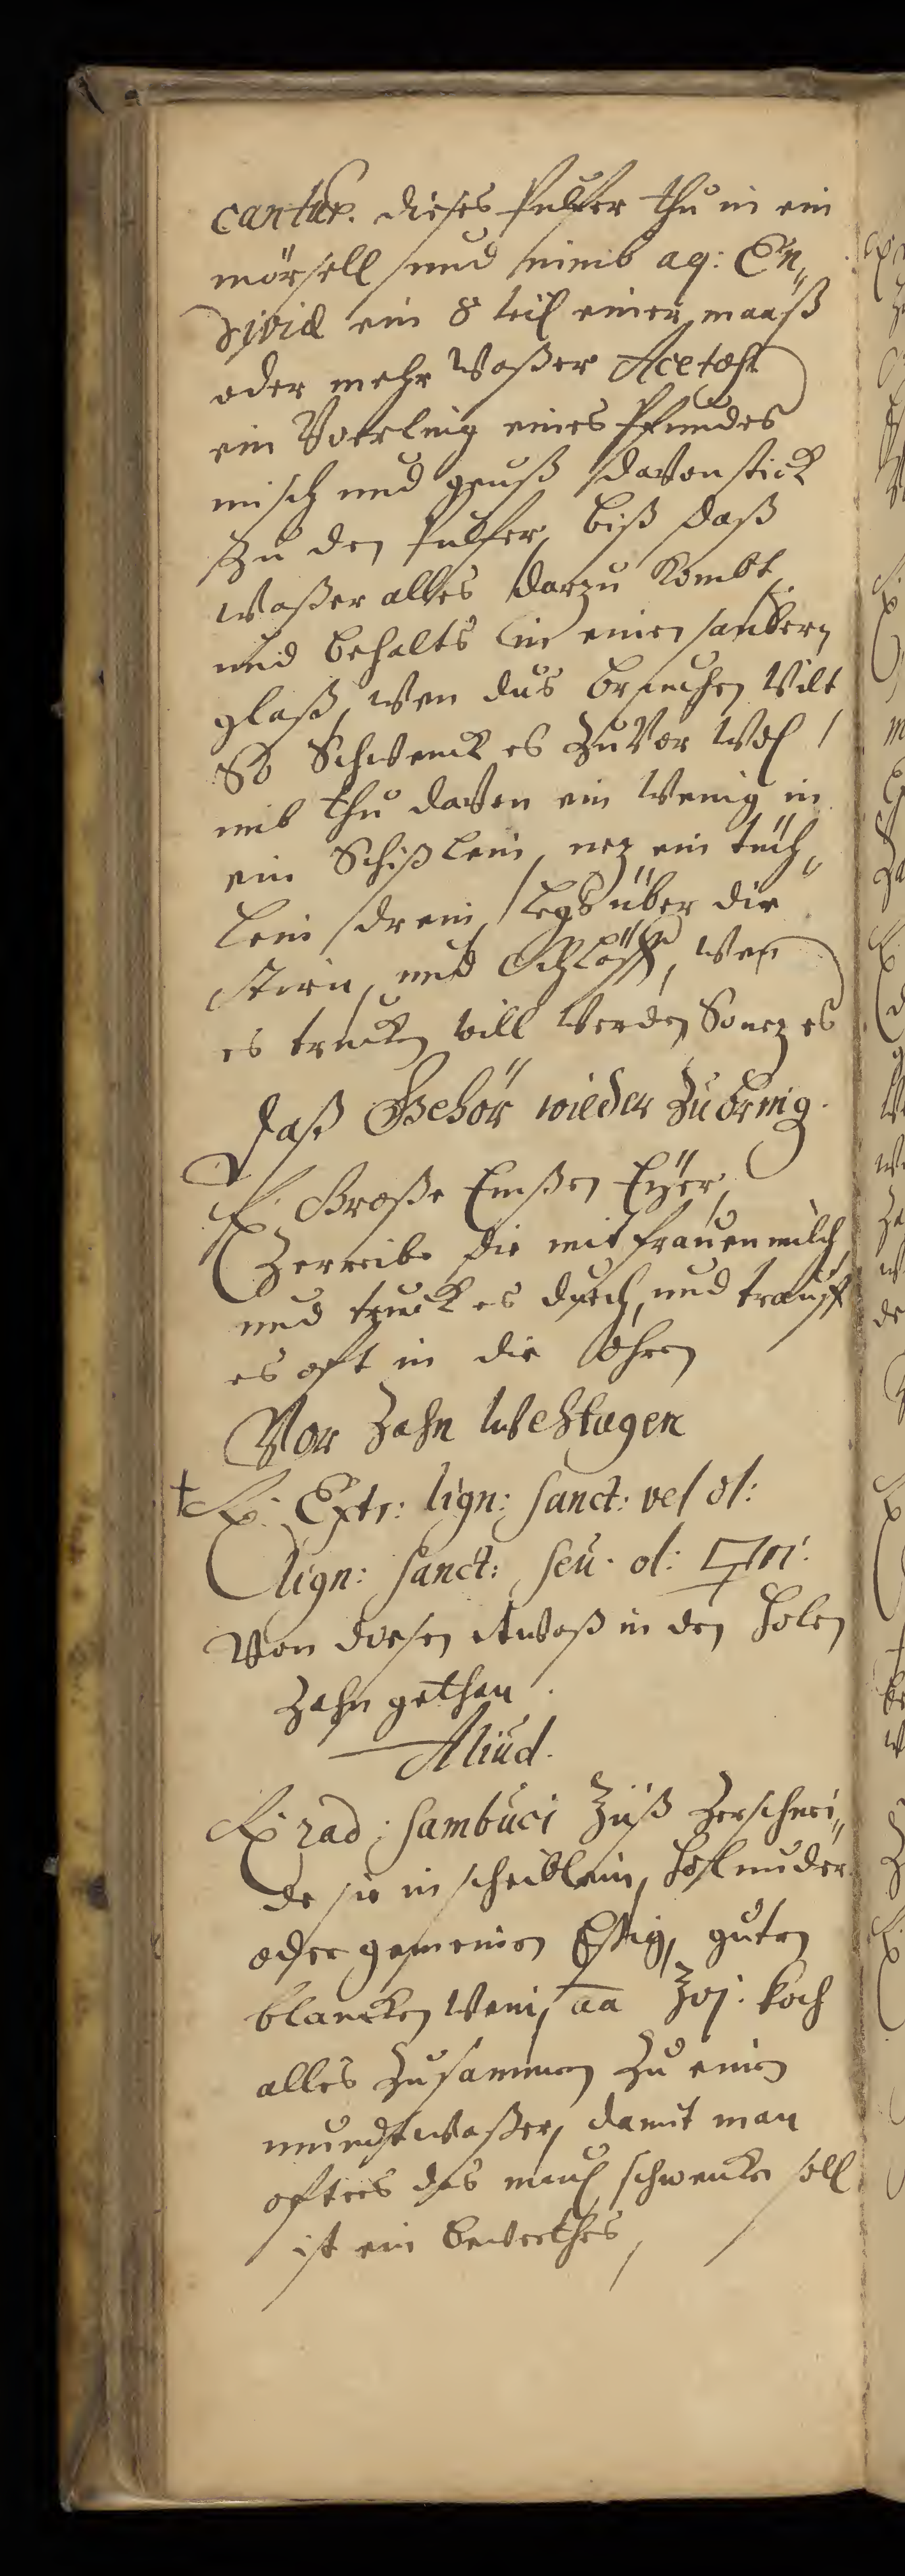 cantur. dieses Pulfer thu in ein
mörsell und nimb aq: En„
diviæ ein 8 teil einer maaß
oder mehr Waßer Acetosæ
ein Vierling eines Pfundes
misch und geuß davon
zu den Pulfer, biß daß
Waßer alles darzu Kombt,
und behalts in einen saubern
glaß, wen dus brauchen Wilt
So Schwenck es zuvor Wol /
und thu davon ein Wenig in
ein Schißlein, nez ein tüch„
lein drein, legs über die
Stirn, und Schläff, Wen
es trucken will Werden So nez es
Daß Gehör wieder zu bring.
℞. Große Emßen Eyer,
Zerreibe die mit frauen milch,
und truck es durch, und trauff
es oft in die Ohren
Vor Zahn Wehtagen
† ℞. Extr: lign: sanct: vel ol:
lign: sanct: seu ol:
Von diesen etwaß in den holen
Zahn gethan.
Aliud.
℞ rad: sambuci Zerschnei„
de sie in scheiblein,
oder gemeinen Essig, guten
blancken Wein, aa koch
alles zusammen zu einen
mundtwaßer, damit man
offters das maul schwencken soll
ist ein bewerthes,